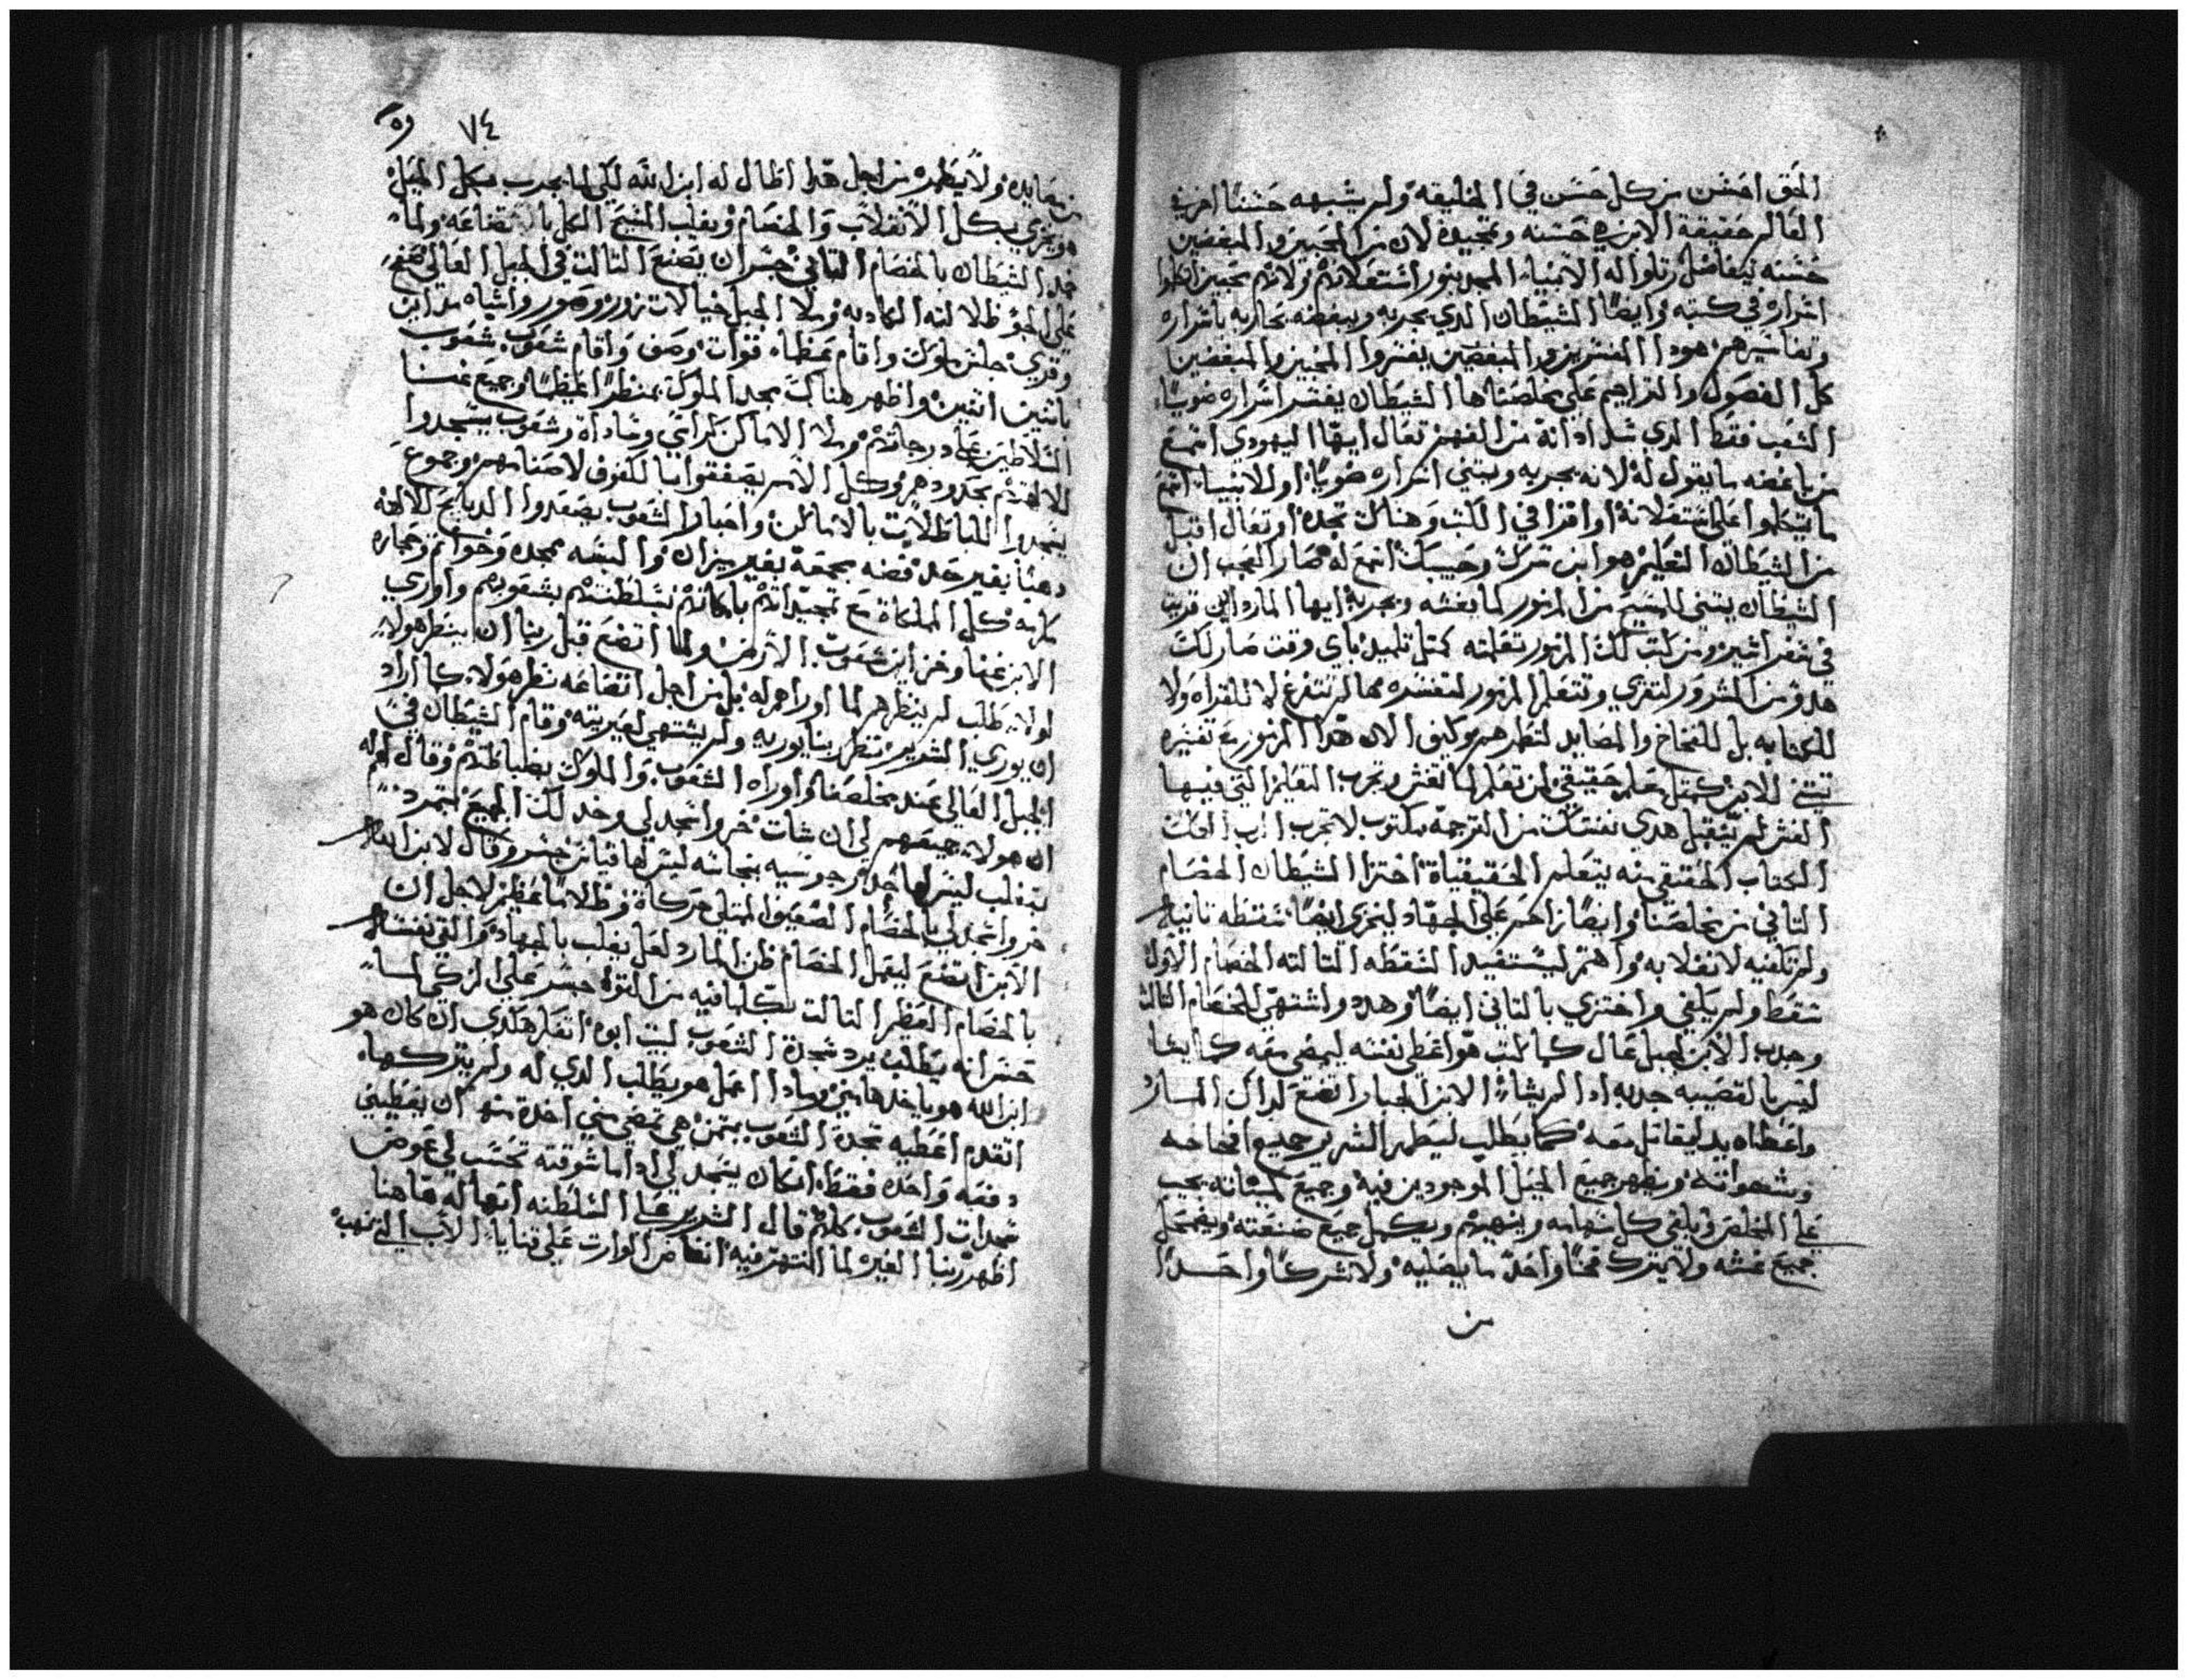 الحق احسن من كل حسن في الخليقه ولم يشبهه حسننا اخر في
العالم حقيقة الابن هي حسنه وتمجيده لان من المحبين والمبغضين
حسنه ليفاضل رتلوا له الانبياء المجد بنور اشتعلاتهم ولانهم محبين
اسراره في كتبه وايضا الشيطان الدي يجربه ويبغضه يحاربه باسراره
وتفاسيرهم هودا المفسرين والمبغضين يفسروا المحبين والمبغضين
كل الفصول والتراجم علي مخلصنا ها الشيطان يفسر اسراره ضويا
الشعب فقط الدي شد ادانه من الفهم تعال ايها اليهودي اسمع
من باغضه ما يقول له لانه يجربه ويبني اسراره ضويا او الانبيا اسمع
ما يتكلموا علي اشتعلانه او اقرا في الكتب وهناك تجده او تعال اقبل
من الشيطان التعليم هو ابن سرك وحبيبك اسمع له صار العجب ان
الشيطان يبني للمسيح من المزمور لما يغشه ويجربه ايها المارد اين قريت
في سفر اشير ومن كتب لك المزمور تعلمته كمثل تلميد باي وقت صار لك
هدو من الشرور لتقري وتتعلم المزمور لتفسره مما لم تتفرغ لا للقراه ولا
للكتابه بل للفخاخ والمصايد لتطمرهم وكيف الان هدا المزمور مع تفسيره
تبني للابن كمثل معلم حقيقي لمن تعلم لما تغش وتجرب التعليم التي فيها
الغش لم يتقبل هدي نفسك من الترجمه مكتوب لا تجرب الرب الهك
الكتاب الحقيقي منه يتعلم الحقيقياة اختزا الشيطان الخصام
التاني من مخلصنا وايضا زاحم علي الجهاد لينخزي ايضا سقطه تانيه
ولم تكفيه لانغلابه واهتم ليستفيد السقطه التالته الخصام الاول
سقط ولم يكفي واختزي بالتاني ايضا وهدد واشتهي للخصام التالت
وجدب الابن لجبل عال كما كتب هو اعطي نفسه ليمضي معه كما يشا
ليس بالقصيبه جدبه ادا لم يشاء الابن الجبار اتضع لداك المارد
واعطاه يد ليقاتل معه كما يطلب ليظهر الشرير جميع افخاخه
وشهواته ويظهر جميع الحيل الموجودين فيه وجميع
علي المخلص ويلقي كل سهامه وينهيهم ويكمل جميع صنعته ويضمحل
جميع غشه ولا يترك فخا واحد ما يصليه ولا شركا واحدا
من
٧٤
من مصايده ولا يطمره من اجل هدا اطال له ابن الله لكي لما يجرب بكل الحيل
هو يخزي بكل الانغلاب والخصام ويغلب المسيح الكل بالاتضاعه ولما
خد الشيطان بالخصام التاني جسر ان يصنع التالت في الجبل العالي صنع
علي الجو ظلالته الكادبه وملا الجبل خيالات زور وصور واشياه مداين
وقري جلس ملوك واقام عظماء قوات وصف واقام شعوب شعوب
باثنين اثنين واظهر هناك مجد الملوك بمنظرا عظيما وجميع
السلاطين علي درجاتهم وملا الاماكن كراسي وساداة وشعوب يسجدوا
لالهتهم بحدودهم وكل الامم يصفقوا بالكفوف لاصنامهم وجموع
يسجدوا للباطلات بالاماكن واحبار الشعوب يصعدوا الدبايح للالهه
دهبا بغير حد فضه مجمعة بغير ميزان والبسه ممجده وخواتم وحجاره
كريمه كل المملكاة مع تمجيداتهم باماكنهم بسلطنتهم بشعوبهم واوري
الابن غنا وخزاين شعوب الارض ولما اتضع قبل ربنا ان ينظر هولاء
لولا يطلب لم ينظرهم لما اوراهم له بل من اجل اتضاعه نظر هولاء كما اراد
ان يوري الشرير نظر ربنا يوريه ولم يشتهي لغيريته وقام الشيطان في
الجبل العالي عند مخلصنا واوراه الشعوب والملوك بضباطهم وقال له
ان هولاء جميعهم لي ان شات خر واسجد لي وخد لك الجميع لتمرد
بتغلب ليس لها حد وجوسيه بنجاسه ليس لها قياس جسر وقال لابن الله
خر واسجد لي بالخصام الضعيف الممتلي حركاة وظلاما عظيم لاجل ان
الابن اتضع ليقبل الخصام ظن المارد لعل يغلب بالجهاد والقي نفسه
بالخصام العظيم التالت بكلما فيه من القوه جسر علي الزكي لما
حسر انه يطلب يرد سجدة الشعوب لبيت ابوه انفا هكدي ان كان هو
ابن الله هو ياخدها مني ومادا اعمل هو يطلب الدي له ولم يتركها
اتقدم اعطيه سجدة الشعوب بتمن هي تمضي مني اخدة منه ان يعطيني
دفعه واحده فقط ان كان يسجد لي ادا ما شوقته تحسب لي عوض
سجدات الشعوب كلهم قال الشرير علي السلطنه انها له هاهنا
اظهر ربنا الغيره لما انتهر فيه انغاض الوارت علي قنايا الاب التي نهب